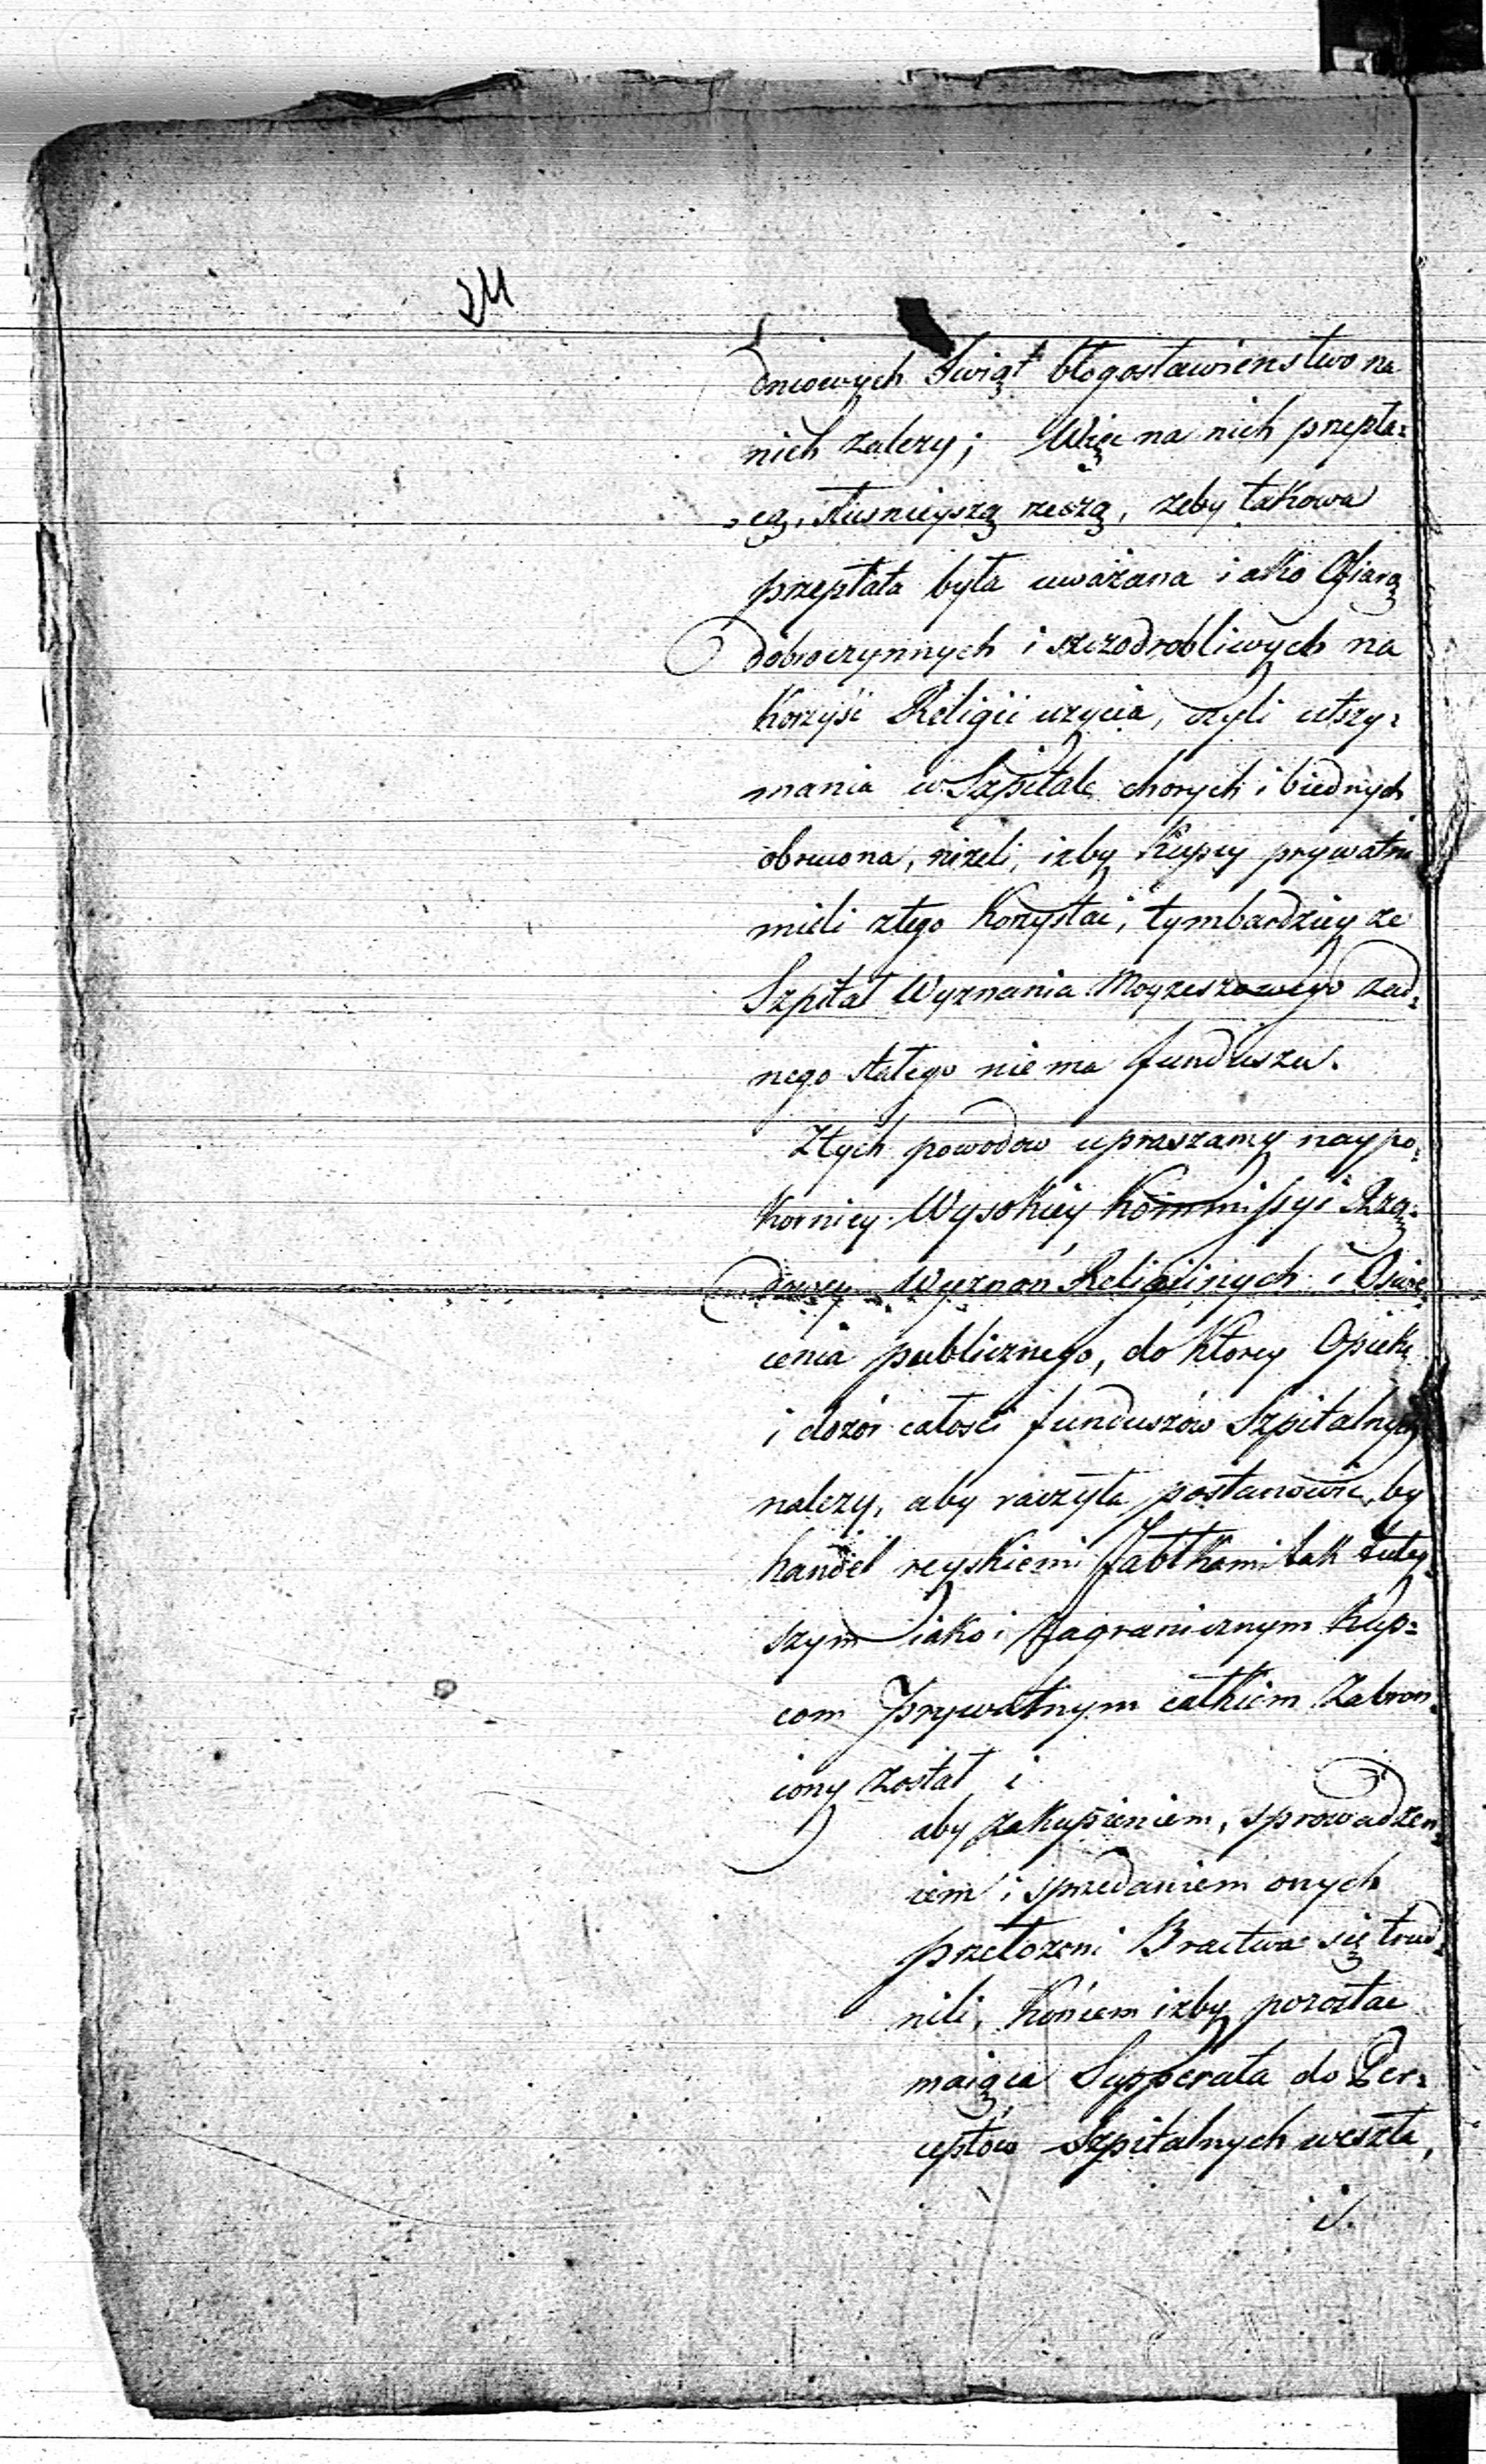 24
dniowych Swiąt błogosławienstwo na
nich zalezy; Więc na nich przepła=
=cą, słusnieyszą rzeczą, zeby takowa
przepłata była uważana iako Ofiarą
dobroczynnych i szczodrobliwych na
Korzyść Religii uzycia, czyli utrzy=
mania w Szpitale chorych i biednych
obrucona, niżeli, izby Kupcy prywatni
mieli ztego Korzystać, tymbardziey ze
Szpital Wyznania Moyzeszowego zad=
nego stałego nie ma funduszu.
Ztych powodow upraszamy naypo=
Korniey Wysokiey Kommissyi Rzą=
dowey Wyznań Religiinych i Oswie
cenia publicznego, do Ktorey Opieka
i dozór całości funduszów Szpitalnych
nalezy, aby raczyła postanowić, by
handel reyskiemi Jabłkami tak tutey=
szym iako i Zagranicznym Kup=
com Prywatnym całkiem Zabron=
iony został i
aby zakupieniem, sprowadzen=
iem i sprzedaniem onych
przełozeni Bractwa się trud=
nili, Końcem izby pozostać
maiąca Supperata do Per=
ceptów Szpitalnych weszła,
i.